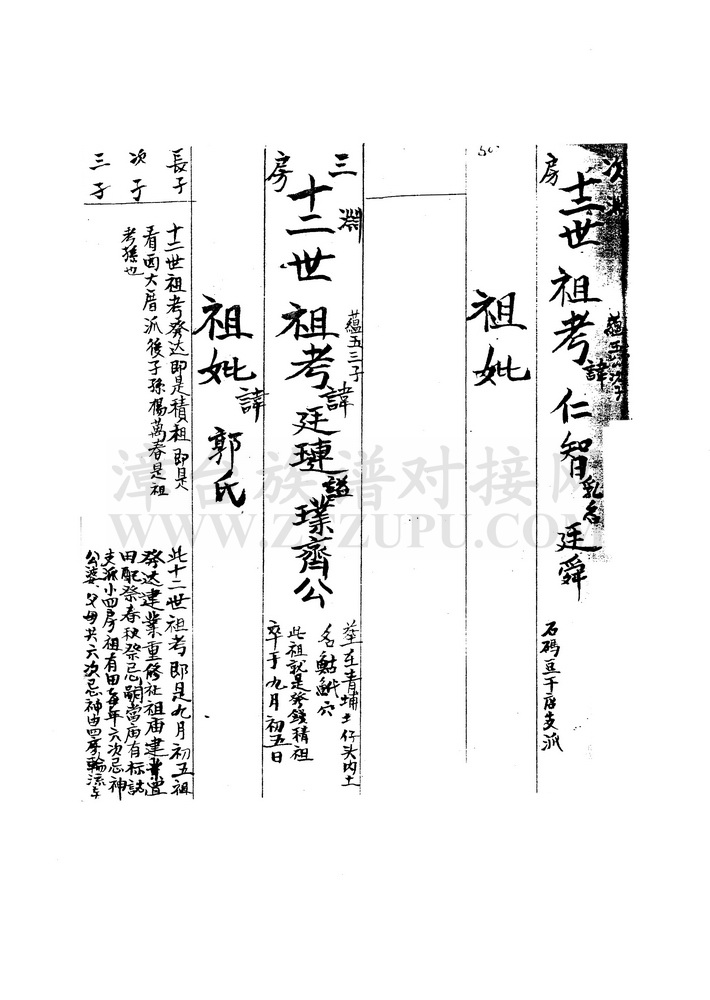 次
房
十二世祖考諱仁智乳名廷舜
石碼豆干店支派
祖妣
三
房
淵
蘊五三子
十二世祖考諱廷璉諡璞齊公
葬在青埔土仔头内土
名魽𩶘穴
此祖就是發錢積祖
卒于九月初五日
祖妣諱郭氏
長子
次子
三子
十二世祖考發达即是積祖即是
看西大厝派後子孫楊萬春是祖
考孫也
此十二世祖考即是九月初五祖
發达建業重修祉祖庙建業置
田配祭春秋祭忌嗣當庙有标誌
支派小四房祖有田每年六次忌神
公婆父母共六次忌神由四房輪流
漳台族谱对接网
WWW.ZTZUPU.COM